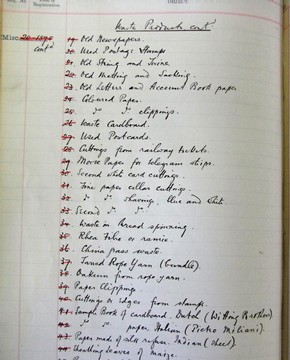 Waste Products cont^d
Misc. 20-1890
cont^d
19. Old Newspapers.
20. Used Postage Stamps
21. Old String and Twine
22. Old Matting and Sacking.
23. Old Letters and Account Book paper
24. Coloured Paper.
25. " " clippings.
26. Waste Cardboard.
27. Used Postcards.
28. Cuttings from railway tickets.
29. Morse Paper for telegram strips.
30. Second white card cuttings.
31. Fine paper collar cuttings.
32. " " shavings, blue and white.
33. Second " "
34. Waste in thread spinning.
35. Rhea Fibre or ramie.
36. China grass waste.
37. Tarred Rope Yarn (bundle).
38. Oakum from rope yarn.
39. Paper Clippings.
40. Cuttings or edges from stamps.
41. Sample Book of cardboard. Dutch (Witting Brothers)
42. " " paper, Italian (Pietro Miliani).
43. Paper made of silk refuse. Indian (sheet).
44. Sheathing leaves of maize.